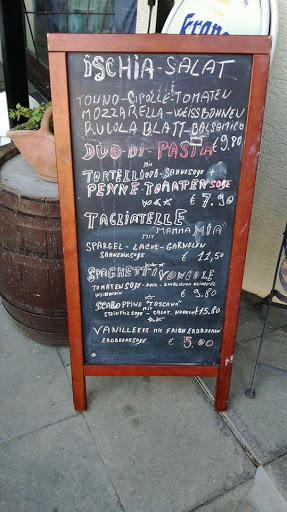 Fran
ISCHIA-SALAT
TONNO-CIPOLLE-TOMATEN
MOZZARELLA-WEISSBOHNEN
RUCOLA BLATT-BALSAMICO
€ 9,80
DUO-DI-PASTA
MIT
SAHNESOSE +
PENNE-TOMATENSOSE
€ 7,90
TAGLIATELLE
MAMMA MIA
MIT
SPARGEL-LACHS-GARNELEN
SAHNESOSE € 11,50
SPAGHETTI VONGOLE
TOMATENSOSE-ODER
WEISSWEIN € 9.80
SCALOPPINE "TOSCANA"
MIT
STEINPILZSOSE-SALAT €15.80
VANILLEEIS MIT FRISCH ERDBEEREN
ERDBEERSOSE € 5.00